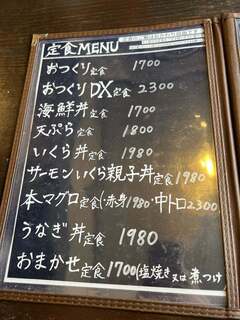 定食MENU
おつくり定食 1700
おつくりDX定食 2300
海鮮丼定食 1700
天ぷら定食 1800
いくら丼定食 1980
サーモンいくら親子丼定食 1980
本マグロ定食(・赤身1980・中トロ2300
うなぎ丼定食 1980
おまかせ定食1700(塩焼き又は煮つけ